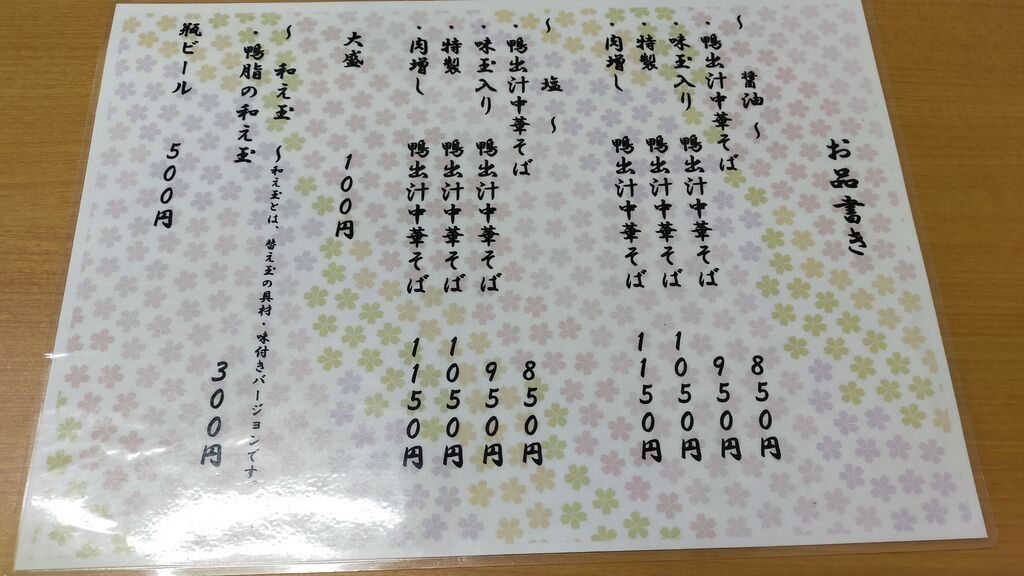 お品書き
～ 醤油 ～
・鴨出汁中華そば 850円
・味玉入り 鴨出汁中華そば 950円
・特製 鴨出汁中華そば 1050円
・肉増し 鴨出汁中華そば 1150円
～ 塩 ～
・鴨出汁中華そば 850円
・味玉入り 鴨出汁中華そば 950円
・特製 鴨出汁中華そば 1050円
・肉増し 鴨出汁中華そば 1150円
大盛 100円
～ 和え玉 ～和え玉とは、替え玉の具材・味付きバージョンです。
・鴨脂の和え玉 300円
瓶ビール 500円